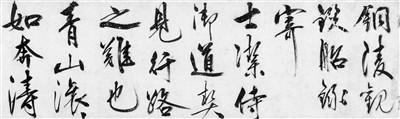 銅陵觀
鉄船錄
寄
士潔侍
御道契
見行路
之難也
青山滾〻
如奔濤